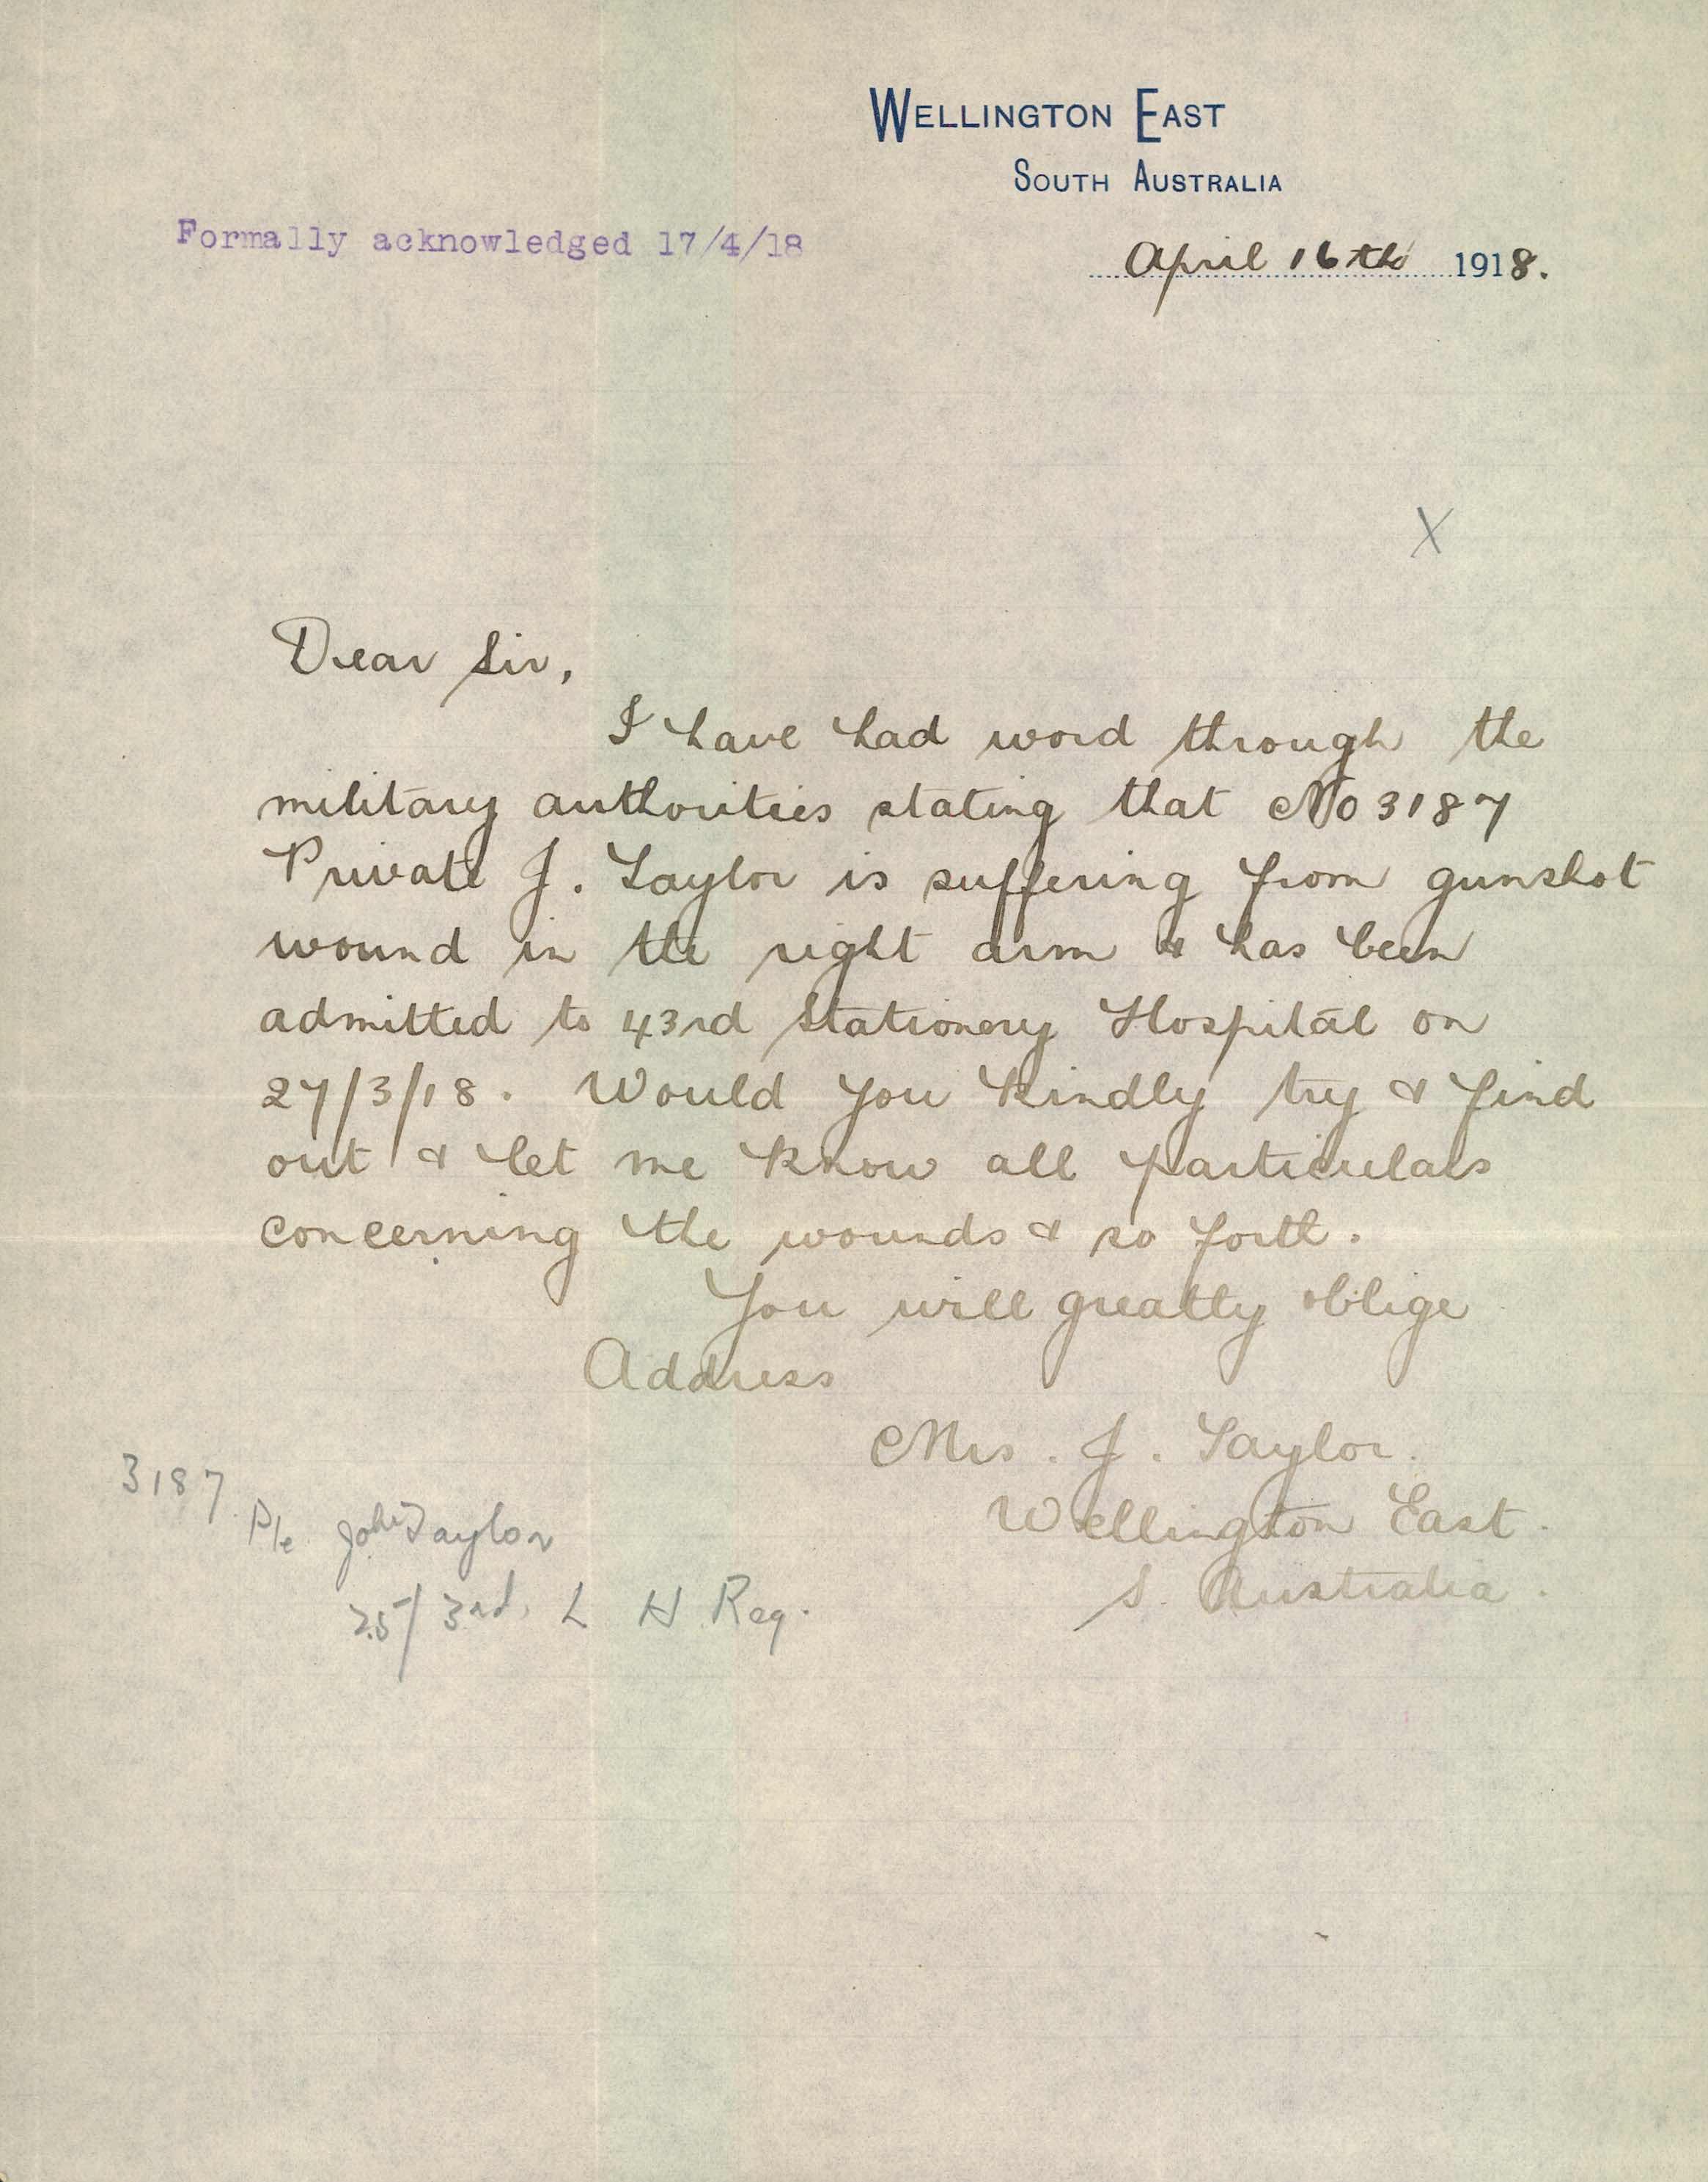 WELLINGTON EAST
SOUTH AUSTRALIA
Formally acknowledged 17/4/18
April 16th 1918.
X
Dear Sir,
I have had word through the
military authorities stating that No 3187
Private J. Taylor is suffering from gunshot
wound in the right arm & has been
admitted to 43rd Stationery Hospital on
27/3/18. Would you kindly try & find
out & let me know all particulars
concerning the wounds & so forth.
You will greatly oblige
Address
Mrs. J. Taylor.
Wellington East.
S. Australia.
3187
Pte John Taylor
25/3rd. L H Reg.